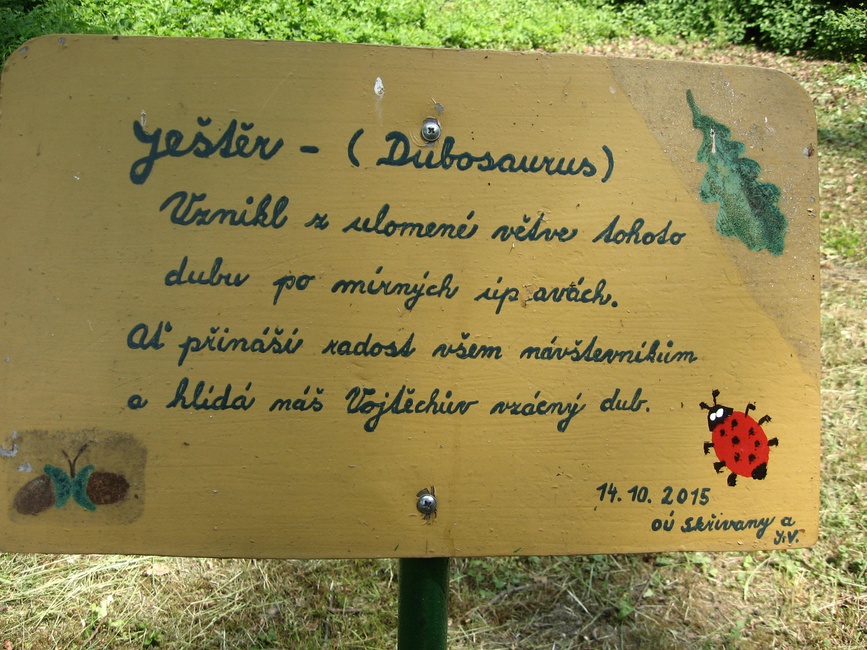 Ještěr - (Dubosaurus)
Vznikl z ulomené větve tohoto
dubu po mírných úp avách.
Ať přináší radost všem návštevníkům
a hlídá náš Vojtěchův vzácný dub.
14.10.2015
OÚ Skřivany a
J.V.